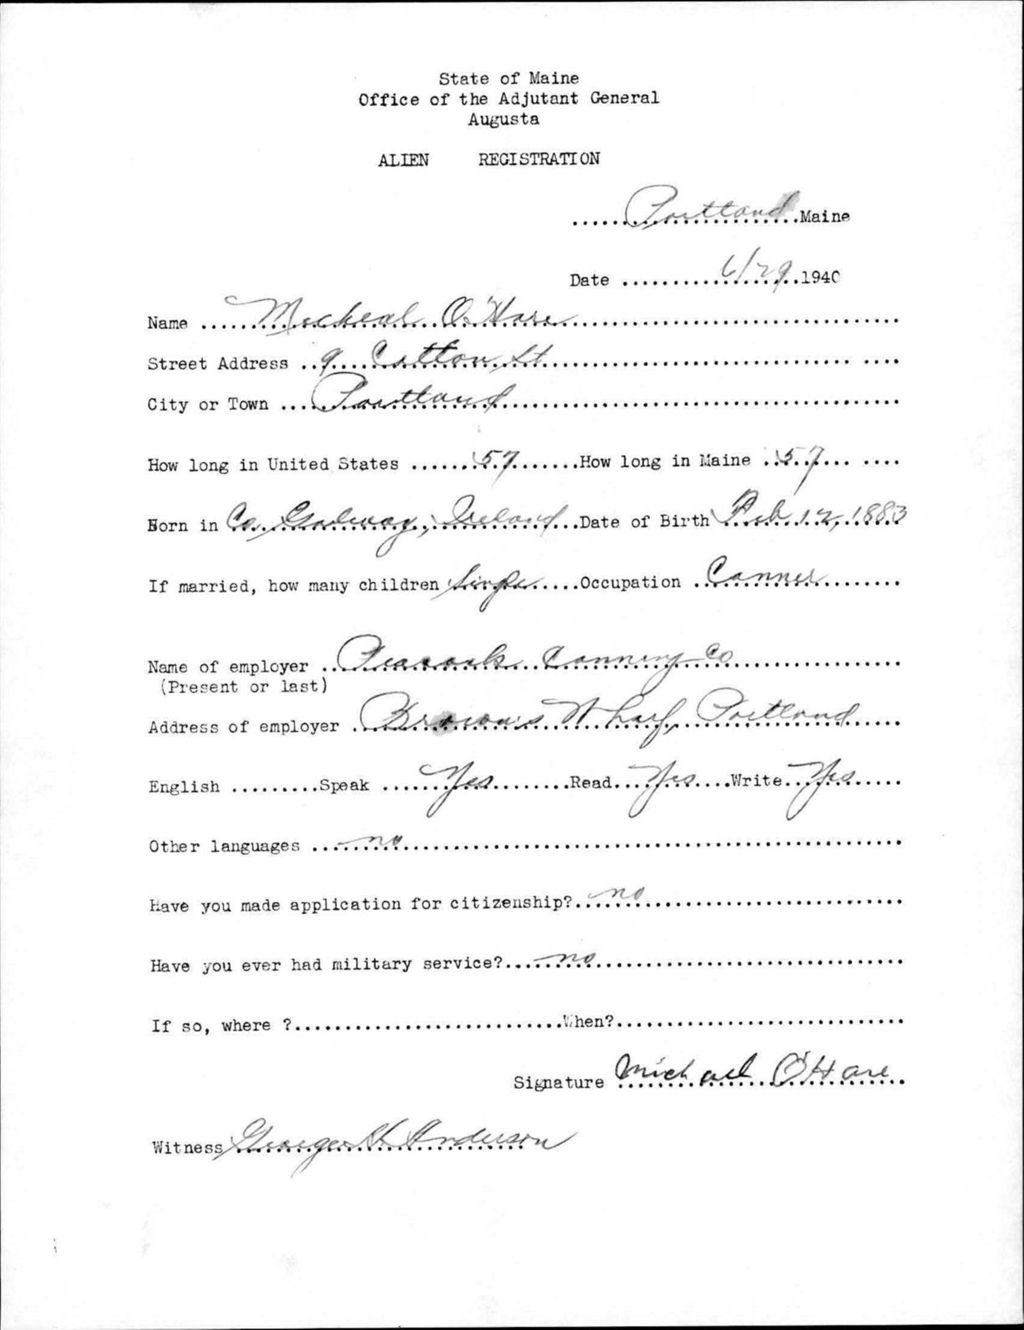 State of Maine
Office of the Adjutant General
Augusta
ALIEN REGISTRATION
Portland Maine
Date 6/29 1940
Name Micheal O'Hare
Street Address 9 Cotton St
City or Town Portland
How long in United States 57 How long in Maine 57
Born in Co. Galway, Ireland Date of Birth Feb 12, 1883
If married, how many children Single Occupation Canner
Name of employer Peacock Canning Co
(Present or last)
Address of employer Brown's Wharf, Portland
English Speak Yes Read Yes Write Yes
Other languages no
Have you made application for citizenship? no
Have you ever had military service? no
If so, where ? When?
Signature Michael O'Hare
Witness George Anderson